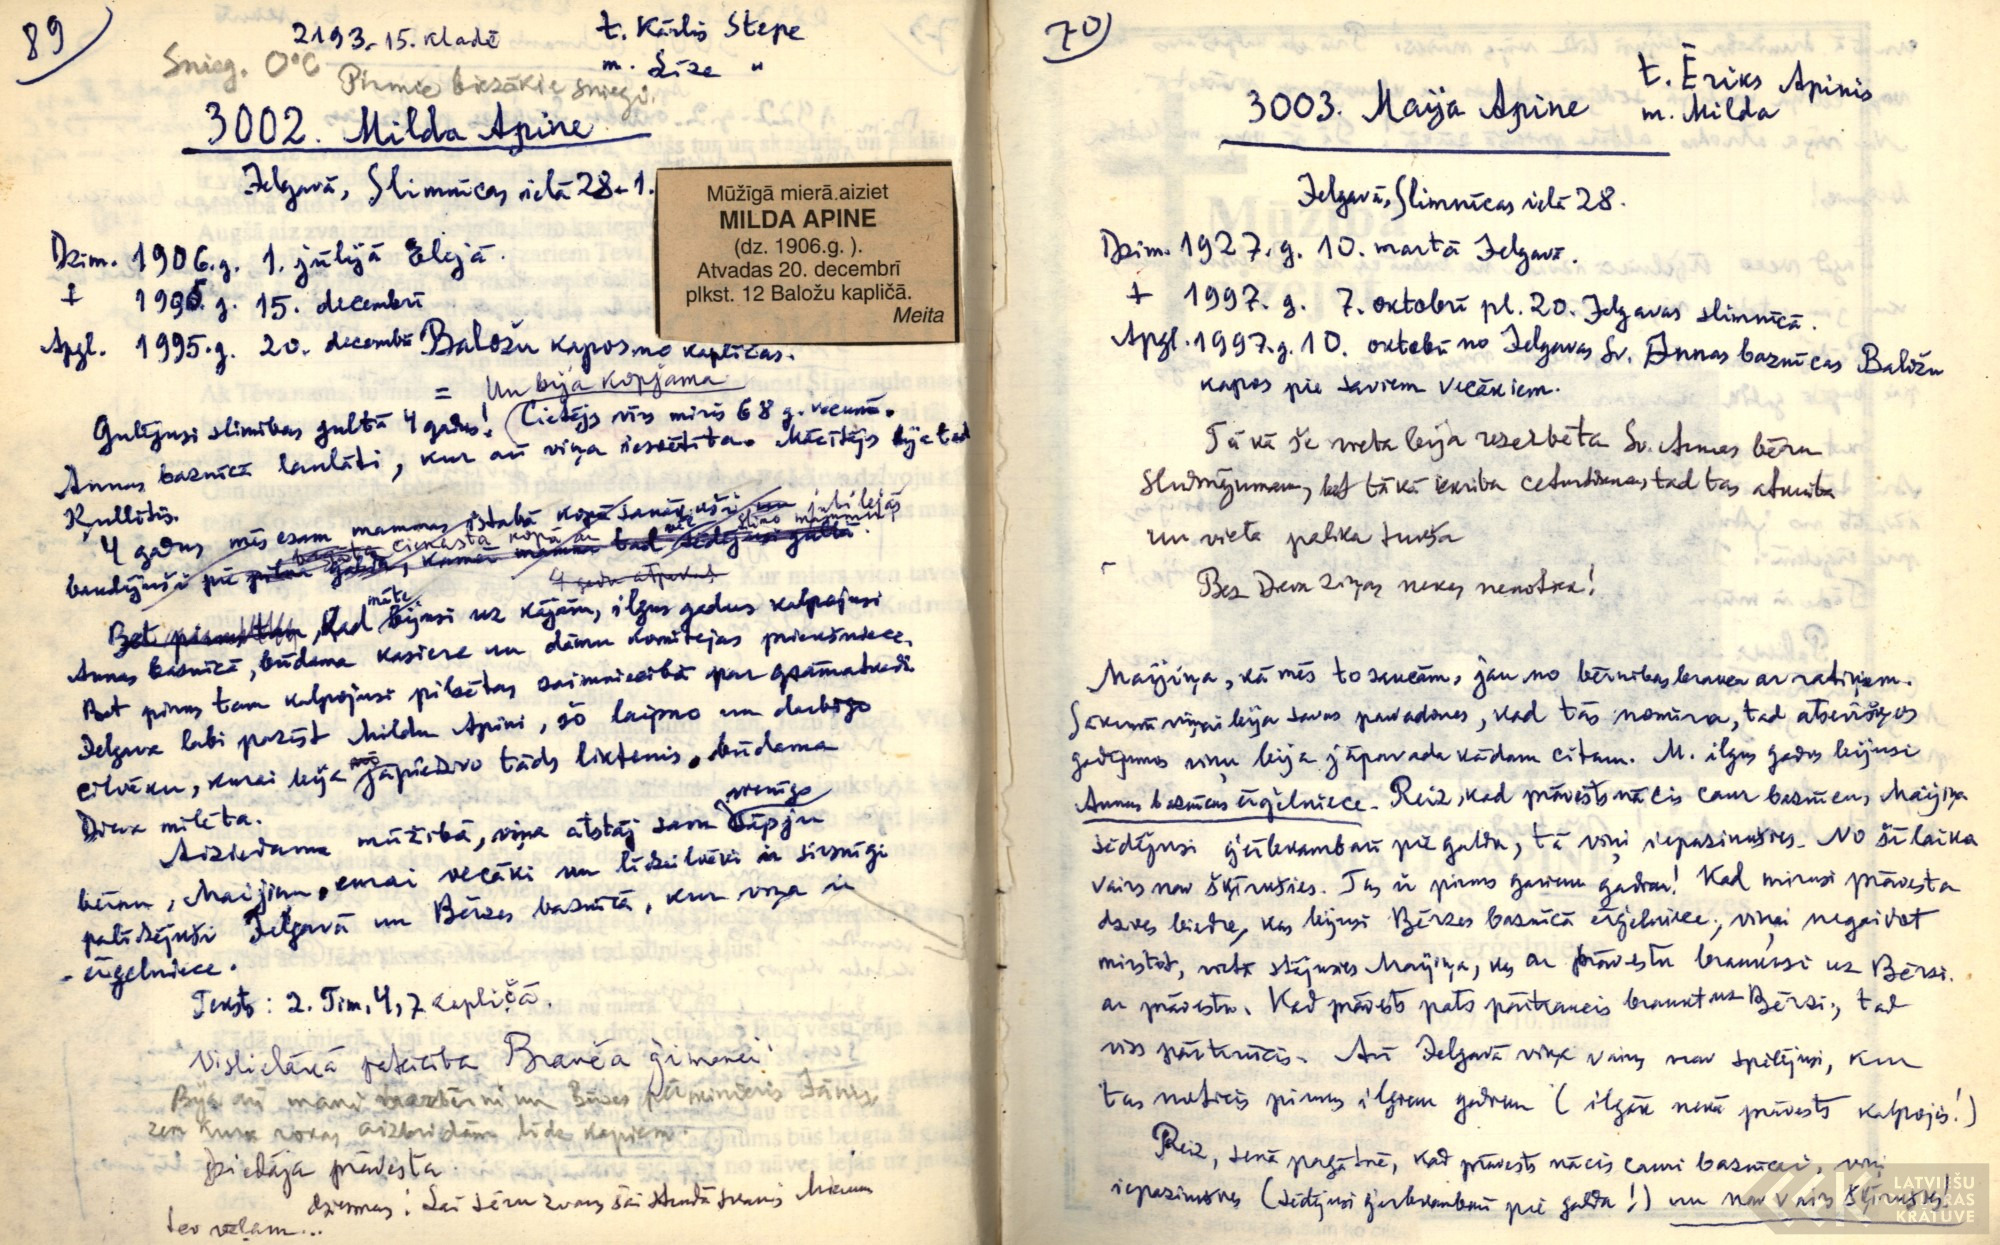 89
2193. 15. kladē
t. Kārlis Stepe
m. Līze "
Snieg. 0°C
Pirmie biezākie sniegi.
3002. Milda Apine
Jelgavā, Slimnīcas ielā 28-1.
Mūžīgā mierā aiziet
MILDA APINE
(dz. 1906.g. ).
Atvadas 20. decembrī
plkst. 12 Baložu kapličā.
Meita
Dzim. 1906.g. 1. jūlijā Elejā.
+ 1995.g. 15. decembrī
Apgl. 1995.g. 20. decembrī Baložu kapos no kapličas.
= Un bija kopjama
Gulējusi slimības gultā 4 gadus! Cietējs vīrs miris 68 g. vecumā.
Annas baznīcā laulāti, kur arī viņa iesvētīta. Mācītājs bija tad
Kullītis.
4 gadus mēs esam mammas istabā kopā sanākuši jubilejās
4 gadu atpakaļ
Bet pirms tam, kad māte bijusi uz kājām, ilgus gadus kalpojusi
Annas baznīcā, būdama kasiere un dāmu komitejas priekšniece.
Bet pirms tam kalpojusi pilsētas saimniecībā par grāmatvedi
Jelgava labi pazīst Mildu Apini, šo laipno un darbīgo
cilvēku, kurai bija jāpiedzīvo tāds liktenis, būdama
Dieva mīlēta.
Aiziedama mūžībā, viņa atstāj savu vienīgo sāpju
bērnu, Maijiņu, kurai vecāki un līdzcilvēki ir sirsnīgi
palīdzējuši Jelgavā un Bērzes baznīcā, kur viņa ir
- ērģelniece.
Teksts: 2. Tim. 4, 7 kapličā.
Vislielākā pateicība Branča ģimenei!
Bija arī mani mazbērni un Bērzes pērminderis Jānis,
zem kura rokas aizbridām līdz kapiem.
Dziedāja prāvesta
dziesmas: Lai sēru zvans šai stundā skanis Mieru
tev vēlam...
70
3003. Maija Apine
t. Ēriks Apinis
m. Milda
Jelgavā, Slimnīcas ielā 28.
Dzim. 1927.g. 10. martā Jelgavā.
+ 1997.g. 7. oktobrī pl. 20. Jelgavas slimnīcā.
Apgl. 1997.g. 10. oktobrī no Jelgavas Sv. Annas baznīcas Baložu
kapos pie saviem vecākiem.
Tā kā še vieta bija rezervēta Sv. Annas bēru
sludinājumam, bet tā kā iekrita ceturtdienas tad tas atkrita
un vieta palika tukša
Bez Dieva ziņas nekas nenotika!
Maijiņa, kā mēs to saucām, jau no bērnības brauca ar ratiņiem.
Sākumā viņai bija savas pavadones, kad tās nomira, tad atsevišķos
gadījumos viņu bija jāpavada kādam citam. M. ilgus gadus bijusi
Annas baznīcas ērģelniece. Reiz, kad prāvests nācis caur baznīcu, Maijiņa
sēdējusi ģērbkambarī pie galda, tā viņi iepazinušies. No šī laika
vairs nav šķīrušies. Tas ir pirms gariem gadiem! Kad mirusi prāvesta
dzīves biedre, kas bijusi Bērzes baznīcā ērģelniece, viņai negaidot
mirstot, vietā stājusies Maijiņa, kas ar prāvestu braukusi uz Bērzi.
ar prāvestu. Kad prāvests pats pārtraucis braukt uz Bērzi, tad
viss pārtrūcis. Arī Jelgavā viņa vairs nav spēlējusi, kur
tas noticis pirms ilgiem gadiem (ilgāk nekā prāvests kalpojis!)
Reiz, senā pagātnē, kad prāvests nācis cauri baznīcai, viņi
iepazinušies (sēdējusi ģērbkambarī pie galda!) un nav vairs šķīrušies.
LATVIEŠU
KULTŪRAS
KRĀTUVE